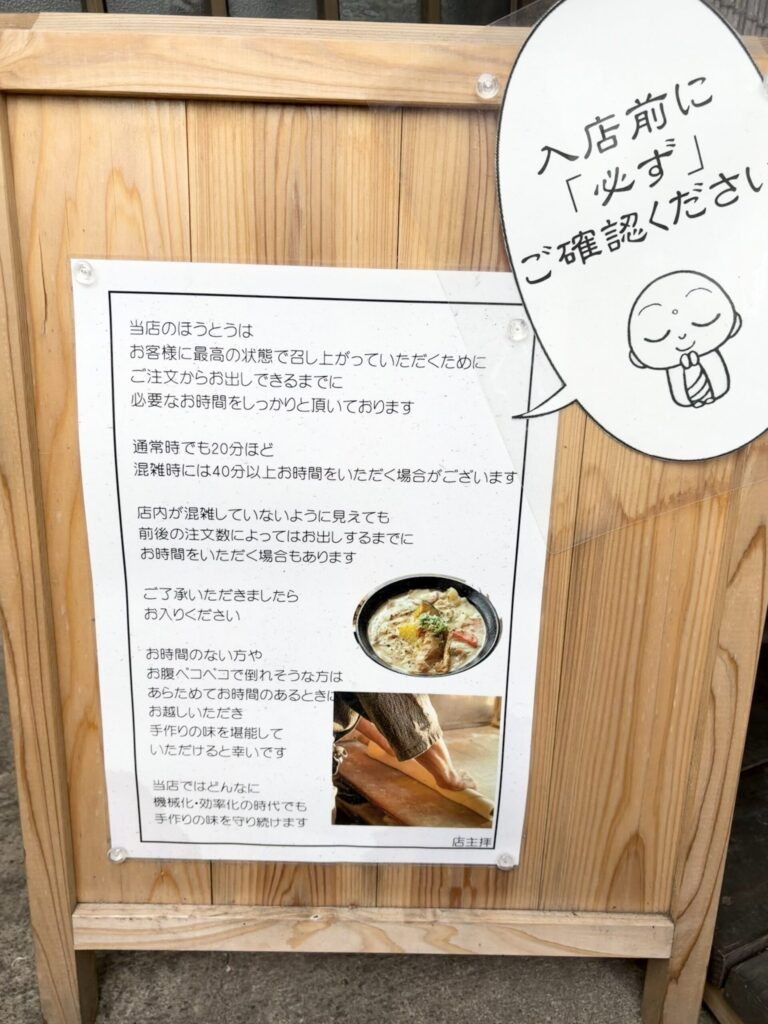 入店前に
「必ず」
ご確認ください
当店のほうとうは
お客様に最高の状態で召し上がっていただくために
ご注文からお出しできるまでに
必要なお時間をしっかりと頂いております
通常時でも20分ほど
混雑時には40分以上お時間をいただく場合がございます
店内が混雑していないように見えても
前後の注文数によってはお出しするまでに
お時間をいただく場合もあります
ご了承いただきましたら
お入りください
お時間のない方や
お腹ペコペコで倒れそうな方は
あらためてお時間のあるときに
お越しいただき
手作りの味を堪能して
いただけると幸いです
当店ではどんなに
機械化・効率化の時代でも
手作りの味を守り続けます
店主拝